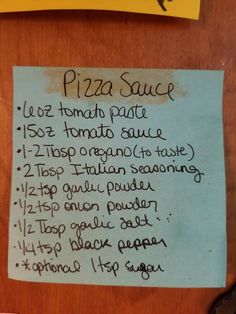 Pizza Sauce
•6oz tomato paste
•15oz tomato sauce
•1-2Tbsp oregano (to taste)
•2 Tbsp Italian seasoning
•1/2 tsp garlic powder
•1/2 tsp onion powder
•1/2 Tbsp garlic salt
•1/4 tsp black pepper
•*optional 1tsp sugar